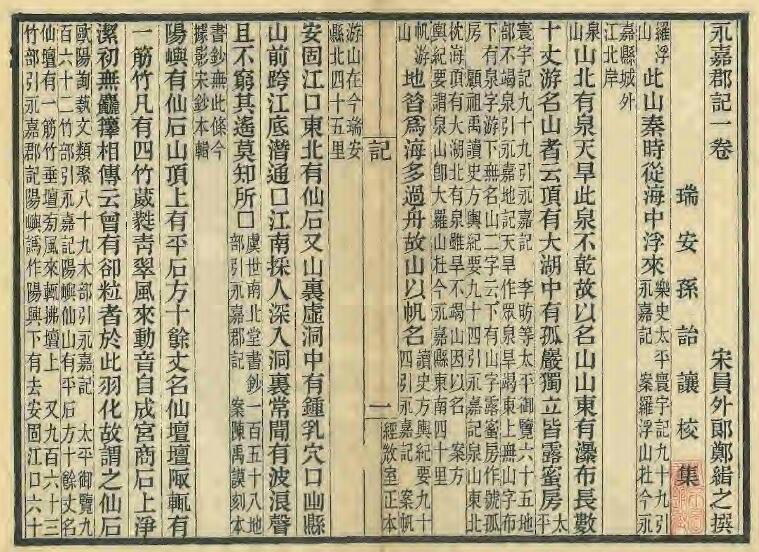 永嘉郡記一卷 宋員外郎鄭緝之撰
瑞安孫詒讓校集
羅浮山 此山秦時從海中浮來 樂史太平寰宇記九十九引永嘉記 案羅浮山杜今永
嘉縣城外江北岸
泉山 山北有泉天旱此泉不乾故以名山山東有瀑布長數
十丈游名山者云頂有大湖中有孤巖獨立皆露蜜房 太平
寰宇記九十九引永嘉記 李昉等太平御覽六十五地
部不竭泉引永嘉地記天旱作眾泉旱竭東上無山字布
下有泉字游下無名山二字云下有山字露蜜房作號孤
房 顧祖禹讀史方輿紀要九十四引永嘉記泉山東北
枕海頂有大湖北有泉雖旱不竭山因以名 案方
輿紀要謂泉山卽大羅山杜今永嘉縣東南四十里
帆游山 地昔爲海多過舟故山以帆名 讀史方輿紀要九十四引永嘉記 案帆
記 一 經敚室正本
游山在今瑞安
縣北四十五里
安固江口東北有仙石又山裏虛洞中有鍾乳穴口幽縣
山前跨江底潛通□江南採人深入洞裏常聞有波浪聲
且不窮其遙莫知所□ 虞世南北堂書鈔一百五十八地部引永嘉郡記 案陳禹謨刻本
書鈔無此條今
據影宋鈔本輯
陽嶼有仙石山頂上有平石方十餘丈名仙壇壇陬輒有
一筋竹凡有四竹葳蕤靑翠風來動音自成宮商石上淨
潔初無麤籜相傳云曾有卻粒者於此羽化故謂之仙石
歐陽詢藝文類聚八十九木部引永嘉記 太平御覽九
百六十二竹部引永嘉記陽嶼仙山有平石方十餘丈名
仙壇有一筋竹垂壇旁風來輒拂壇上 又九百六十三
竹部引永嘉郡記陽嶼譌作陽興下有去安固江口六十